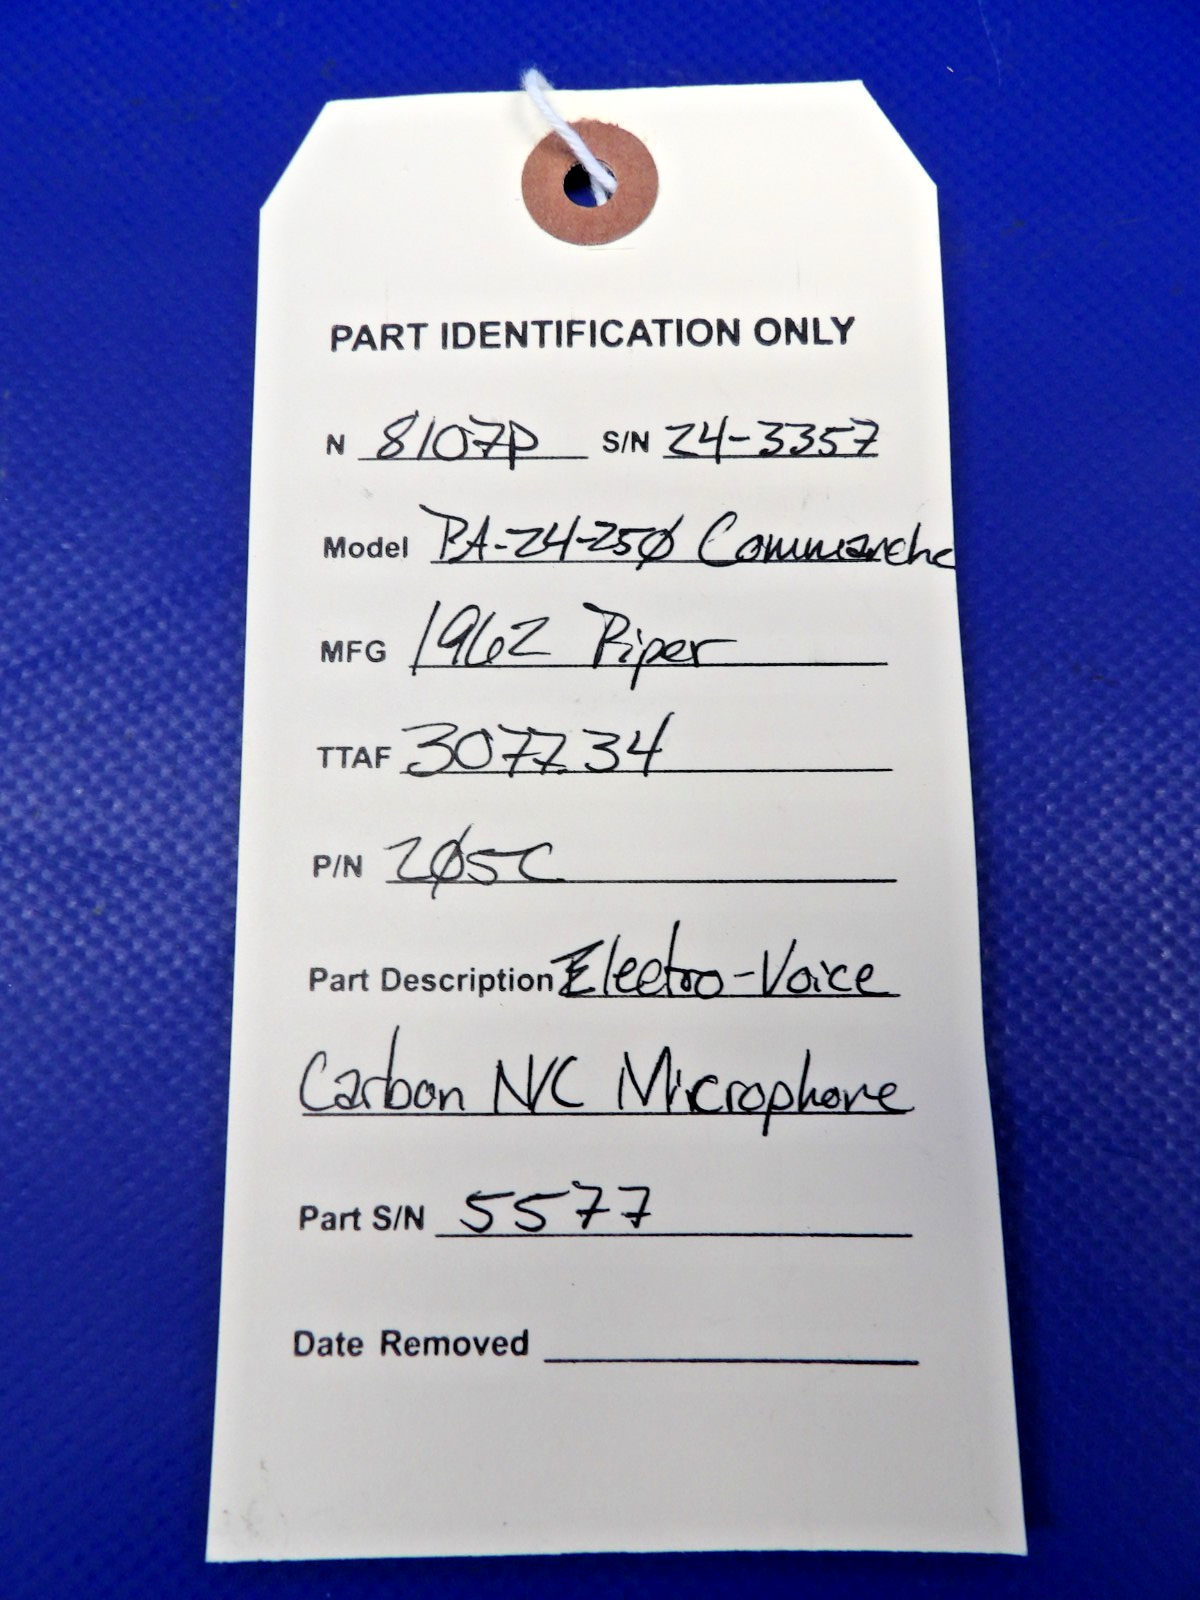 PART IDENTIFICATION ONLY
N 8107P S/N 24-3357
Model PA-24-250 Commanche
MFG 1962 Piper
TTAF 3077.34
P/N 205C
Part Description Electro-Voice
Carbon N/C Microphone
Part S/N 5577
Date Removed